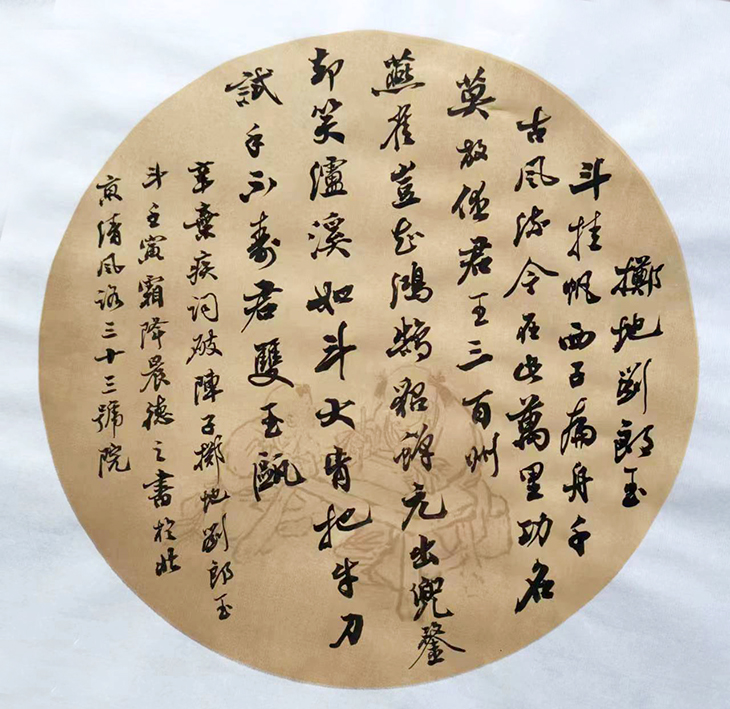 擲地劉郎玉
斗挂帆西子扁舟千
古風流今在此萬里功名
莫放休君王三百州
燕雀豈知鴻鵠貂蟬元出兜鍪
却笑瀘溪如斗大肯把牛刀
試手不壽君雙玉甌
辛棄疾詞破陣子擲地劉郎玉
斗壬寅霜降晨德之書於北
京清風路三十三號院